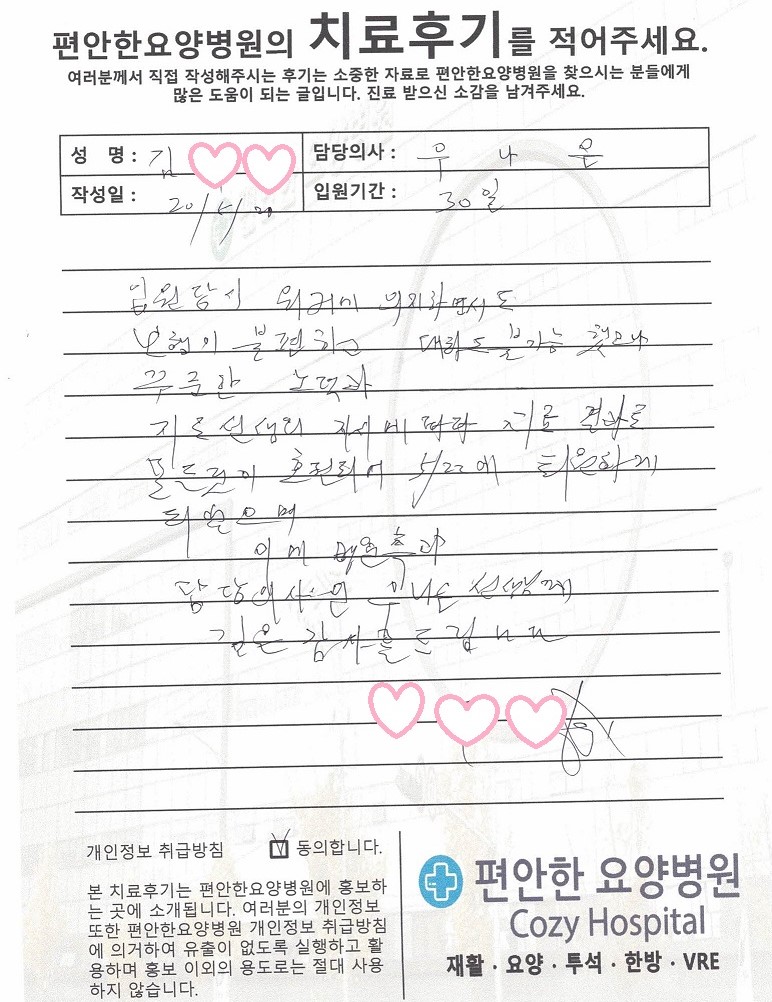 편안한요양병원의 치료후기를 적어주세요.
여러분께서 직접 작성해주시는 후기는 소중한 자료로 편안한요양병원을 찾으시는 분들에게
많은 도움이 되는 글입니다. 진료 받으신 소감을 남겨주세요.
성 명 : 김
담당의사 : 우 나 은
작성일 :
입원기간 : 30일
입원당시 워커에 의지하면서도
보행이 불편하고 불가능 했으나
꾸준한 노력과
치료선생의 치료 결과로
5/22에 퇴원하게
되었으며
이에 병원측과
담당의사인 우나은 선생님께
깊은 감사를 드립니다
개인정보 취급방침 동의합니다.
본 치료후기는 편안한요양병원에 홍보하
는 곳에 소개됩니다. 여러분의 개인정보
또한 편안한요양병원 개인정보 취급방침
에 의거하여 유출이 없도록 실행하고 활
용하며 홍보 이외의 용도로는 절대 사용
하지 않습니다.
편안한 요양병원
Cozy Hospital
재활 · 요양 · 투석 · 한방 · VRE